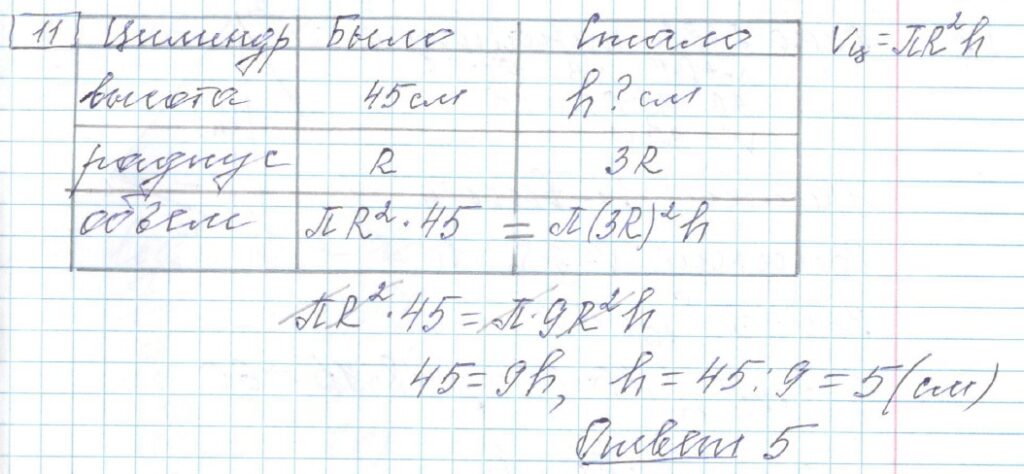 11 Цилиндр Было Стало Vц = πR²h
высота 45 см h ? см
радиус R 3R
объем πR²·45 = π(3R)²h
πR²·45 = π·9R²h
45 = 9h, h = 45 : 9 = 5 (см)
Ответ 5